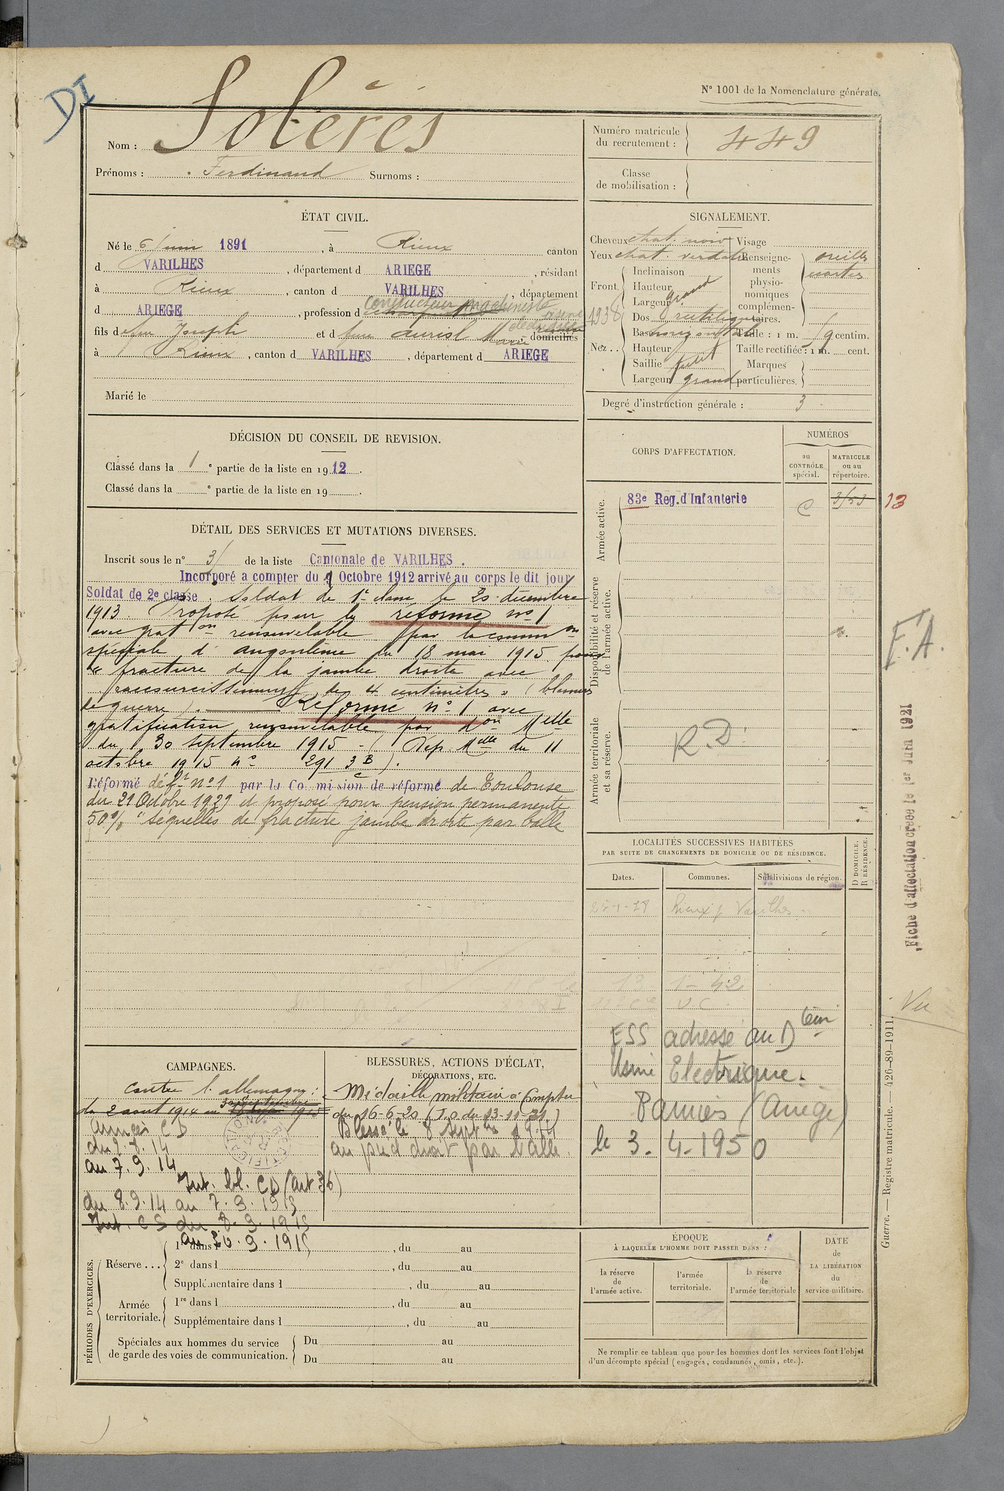 DI
N° 1001 de la Nomenclature générale.
Nom : Solèrés
Prénoms : Ferdinand Surnoms :
ÉTAT CIVIL.
Né le 6 Juin 1891, à Rieux canton
d VARILHES, département d ARIEGE, résidant
à Rieux, canton d VARILHES, département
d ARIEGE, profession d conducteur machiniste
fils de feu Joseph et d feu Marie domiciliés
à Rieux, canton d VARILHES, département d ARIEGE
Marié le
DÉCISION DU CONSEIL DE REVISION.
Classé dans la 1e partie de la liste en 1912
Classé dans la e partie de la liste en 19 .
DÉTAIL DES SERVICES ET MUTATIONS DIVERSES.
Inscrit sous le n° 31 de la liste Cantonale de VARILHES.
Incorporé a compter du 9 Octobre 1912 arrivé au corps le dit jour
Soldat de 2e classe. Soldat de 1e classe le 20 décembre
1913 Proposé pour la réforme n° 1
avec grat on renouvelable par la comm on
spéciale d'angoulème du 18 mai 1915 pour
" fracture de la jambe droite avec
raccourcissement de 4 centimètres " (blessures
de guerre). Réformé n° 1 avec
gratification renouvelable par d on Mlle
du 30 septembre 1915 - (Dep. Mlle du 11
octobre 1915 n° 291 3 B).
Réformé déf. n° 1 par la Commission de réforme de Toulouse
du 21 Octobre 1922 et proposé pour pension permanente
50 % " séquelles de fracture jambe droite par balle
CAMPAGNES.
Contre l'allemagne :
du 2 aout 1914 au 30 septembre 1915
Armées CD
du 2.8.14
au 7.9.14
Int. bl. CD (art 36)
du 8.9.14 au 7.3.1915
Int. CS du 8.3.1915
au 20.9.1915
BLESSURES, ACTIONS D'ÉCLAT,
DÉCORATIONS, ETC.
Médaille militaire à compter
du 16-6-20 (J.O. du 13-11-21)
Blessé le 8 septbre 1914
au pied droit par balle.
PÉRIODES D'EXERCICES.
Réserve ...
1re dans l , du au
2e dans l , du au
Supplémentaire dans l , du au
Armée territoriale.
1re dans l , du au
Supplémentaire dans l , du au
Spéciales aux hommes du service
de garde des voies de communication.
Du au
Du au
Numéro matricule
du recrutement : 449
Classe
de mobilisation :
SIGNALEMENT.
Cheveux chat. noir Visage
Yeux chat. verdatre Renseignements physionomiques complémentaires. oreilles écartées
Front.
Inclinaison
Hauteur grand
Largeur
Nez..
Dos rectiligne
Base horizontale Taille : 1 m. 59 centim.
Hauteur Taille rectifiée : 1 m. cent.
Saillie petit Marques
Largeur grand particulières.
Degré d'instruction générale : 3
CORPS D'AFFECTATION.
NUMÉROS
au CONTRÔLE spécial.
MATRICULE ou au répertoire.
Armée active.
83e Reg. d'Infanterie
13
Disponibilité et réserve
de l'armée active.
F.A.
Armée territoriale
et sa réserve.
R.D.
Fiche d'affectation créée le 1er Juin 1921
LOCALITÉS SUCCESSIVES HABITÉES
PAR SUITE DE CHANGEMENTS DE DOMICILE OU DE RÉSIDENCE.
Dates. Communes. Subdivisions de région. D DOMICILE. R RÉSIDENCE.
Rieux Varilhes
Vu
ESS adresse au D
Usine Electrique.
Pamiers (Ariège)
le 3.4.1950
ÉPOQUE
À LAQUELLE L'HOMME DOIT PASSER DANS :
la réserve de l'armée active.
l'armée territoriale.
la réserve de l'armée territoriale
DATE de LA LIBÉRATION du service militaire.
Ne remplir ce tableau que pour les hommes dont les services font l'objet
d'un décompte spécial (engagés, condamnés, omis, etc.).
Guerre. — Registre matricule. — 426-89-1911.